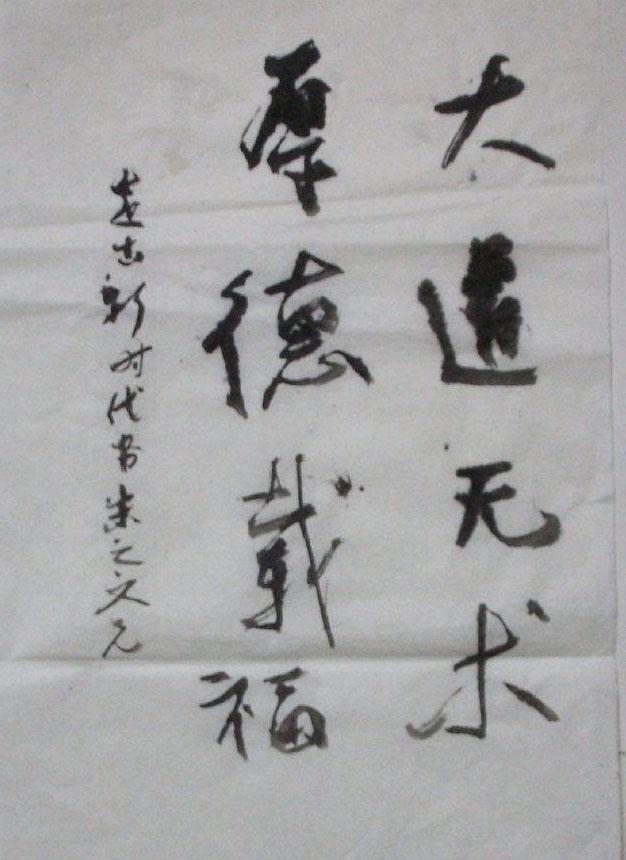 大道无术
厚德载福
走出新时代书朱之文